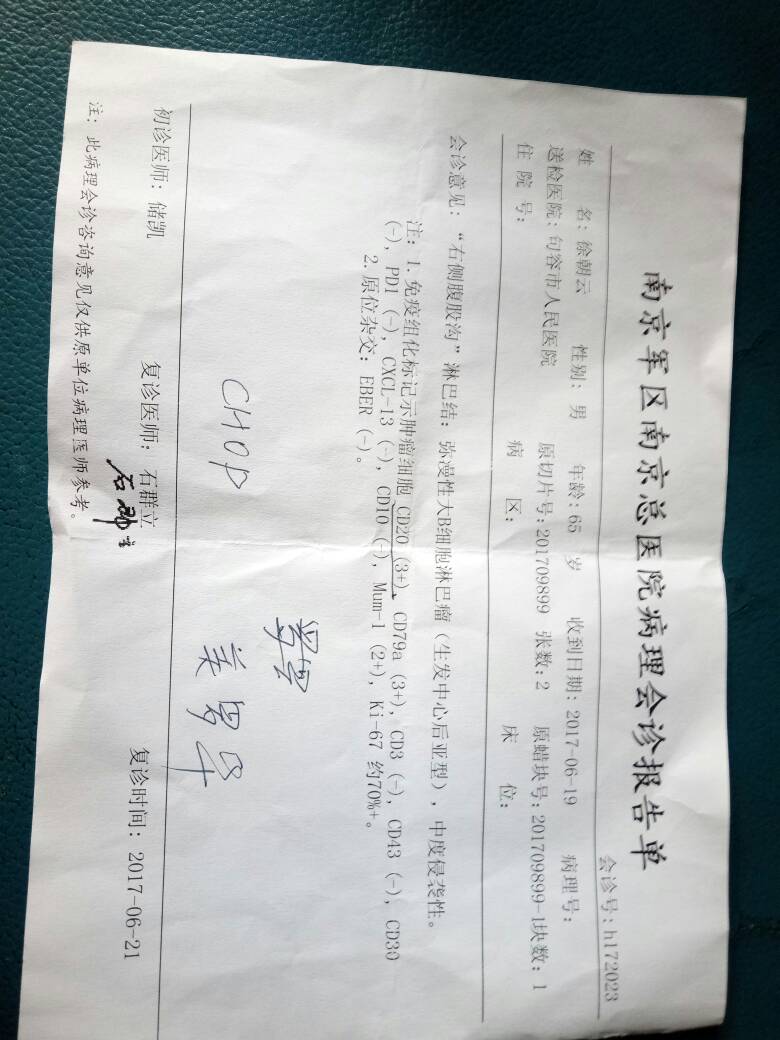 南京军区南京总医院病理会诊报告单
会诊号：h172023
姓 名：徐朝云 性别：男 年龄：65 岁 收到日期：2017-06-19 病理号：
送检医院：句容市人民医院 原切片号：201709899 张数：2 原蜡块号：201709899-1块数：1
住 院 号： 病 区： 床 位：
会诊意见：“右侧腹股沟”淋巴结：弥漫性大B细胞淋巴瘤（生发中心后亚型），中度侵袭性。
注：1.免疫组化标记示肿瘤细胞 CD20 (3+), CD79a (3+), CD3 (-), CD43 (-), CD30
(-), PD1 (-), CXCL-13 (-), CD10 (-), Mum-1 (2+), Ki-67 约70%+。
2.原位杂交：EBER (-)。
CHOP
美罗华
初诊医师：储凯 复诊医师：石群立 复诊时间：2017-06-21
注：此病理会诊咨询意见仅供原单位病理医师参考。